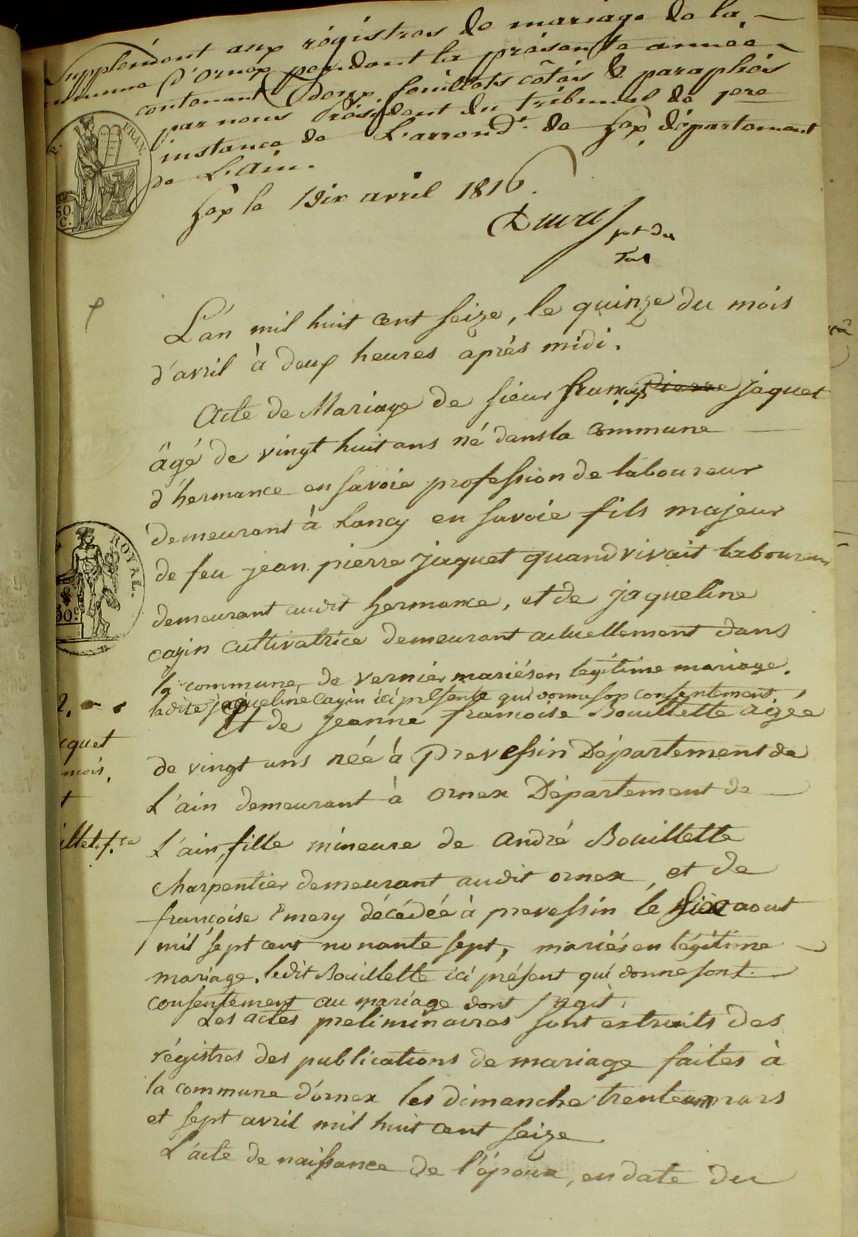 Supplément aux régistres de mariage de la
commune d'ornex pendant la présente année
contenant deux feuillets côtés & paraphés
par nous Président du tribunal de 1ere
instance de L'arrond.t de Gex département
de L'Ain.
Gex le Dix avril 1816.
FRAN.
50.
C.
L'an mil huit cent seize, le quinze du mois
d'avril à deux heures après midi.
Acte de Mariage de sieur françois pierre jaquet
âgé de vingt huit ans né dans la commune
d'hermance en savoie profession de laboureur
demeurant à Lancy en savoie fils majeur
de feu jean pierre jaquet quand vivait laboureur
demeurant audit hermance, et de jaqueline
cayin cultivatrice demeurant actuellement dans
la commune de vernier mariés en légitime mariage.
ladite jaqueline cayin ici présente qui donne son consentement
Et de jeanne françoise Bouillette aigée
de vingt ans néé à prevessin Département de
L'ain demeurant à ornex Département de
L'ain, fille mineure de andré Bouillette
charpentier demeurant audit ornex, et de
françoise Emery décédéé à prevessin le aout
mil sept cent nonante sept, mariés en légitime
mariage. ledit Bouillette ici présent qui donne sont
consentement au mariage dont s'agit.
Les actes preliminaires sont extraits des
régistres des publications de mariage faites à
la commune d'ornex les dimanche trente un mars
et sept avril mil huit cent seize
L'acte de naissance de l'époux, en date du
ROYAL.
2.
cquet
mois.
t
illet f.se